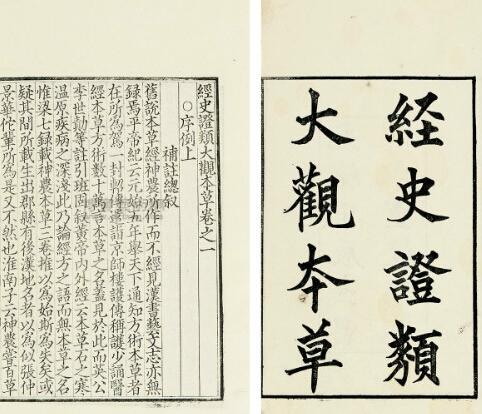 経史證類
大觀本草
經史證類大觀本草卷之一
○序例上
補註總敘
舊說本草經神農所作而不經見漢書藝文志亦無
録焉平帝紀云元始五年舉天下通知方術本草者
在所為駕一封軺傳遣詣京師樓護傳稱護少誦醫
經本草方術數十萬言本草之名蓋見於此而英公
李世勣等註引班固敘黃帝內外經云本草石之寒
温原疾病之深淺此乃論經方之語而無本草之名
惟梁七録載神農本草三卷推以為始斯為失矣或
疑其間所載生出郡縣有後漢地名者以為似張仲
景華佗輩所為是又不然也淮南子云神農嘗百草